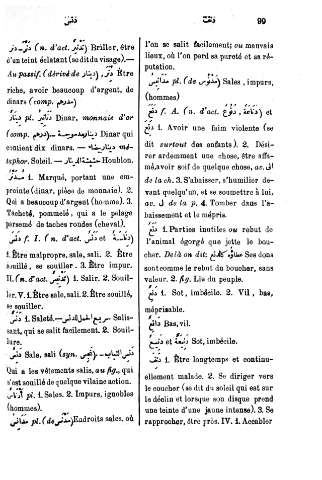 دنس
دنف
99
دَنَّرَ (n. d'act. تَدْنِير) Briller, être
d'un teint éclatant (se dit du visage).—
Au passif. (dérivé de دينار), دُنِّرَ Être
riche, avoir beaucoup d'argent, de
dinars (comp. مدرهم).
دِينَار pl. دَنَانِير Dinar, monnaie d'or
(comp. درهم). — Dinar qui
contient dix dinars. — méta-
phor. Soleil. — Houblon.
مُدَنَّر 1. Marqué, portant une em-
preinte (dinar, pièce de monnaie). 2.
Qui a beaucoup d'argent (homme). 3.
Tacheté, pommelé, qui a le pelage
persemé de taches rondes (cheval).
دَنِسَ f. I. (n. d'act. دَنَس et دَنَاسَة)
1. Être malpropre, sale, sali. 2. Être
souillé, se souiller. 3. Être impur.
II. (n. d'act. تَدْنِيس) 1. Salir. 2. Souil-
ler. V. 1. Être sale, sali. 2. Être souillé,
se souiller.
دَنَس 1. Saleté.— Salis-
sant, qui se salit facilement. 2. Souil-
lure.
دَنِس Sale, sali (syn. نجس).—
Qui a les vêtements salis, au fig., qui
s'est souillé de quelque vilaine action.
pl. أدناس 1. Sales. 2. Impurs, ignobles
(hommes).
مَدَانِس (pl. de مدنس) Endroits sales, où
l'on se salit facilement; ou mauvais
lieux, où l'on perd sa pureté et sa ré-
putation.
pl. (de مدنوس) Sales, impurs,
(hommes)
دَنَعَ f. A. (n. d'act. دُنُوع, دَنَاعَة) et
دَنِعَ 1. Avoir une faim violente (se
dit surtout des enfants). 2. Dési-
rer ardemment une chose, être affa-
mé, avoir soif de quelque chose, av. ل
de la ch. 3. S'abaisser, s'humilier de-
vant quelqu'un, et se soumettre à lui,
av. ل de la p. 4. Tomber dans l'a-
baissement et le mépris.
دَنَع 1. Parties inutiles ou rebut de
l'animal égorgé que jette le bou-
cher. De là on dit: Ses dons
sont comme le rebut du boucher, sans
valeur. 2. fig. Lie du peuple.
دَنِع 1. Sot, imbécile. 2. Vil, bas,
méprisable.
Bas, vil.
دَنِيع et دَنِيعَة Sot, imbécile.
دَنِفَ 1. Être longtemps et continu-
ellement malade. 2. Se diriger vers
le coucher (se dit du soleil qui est sur
le déclin et lorsque son disque prend
une teinte d'une jaune intense). 3. Se
rapprocher, être près. IV. 1. Accabler